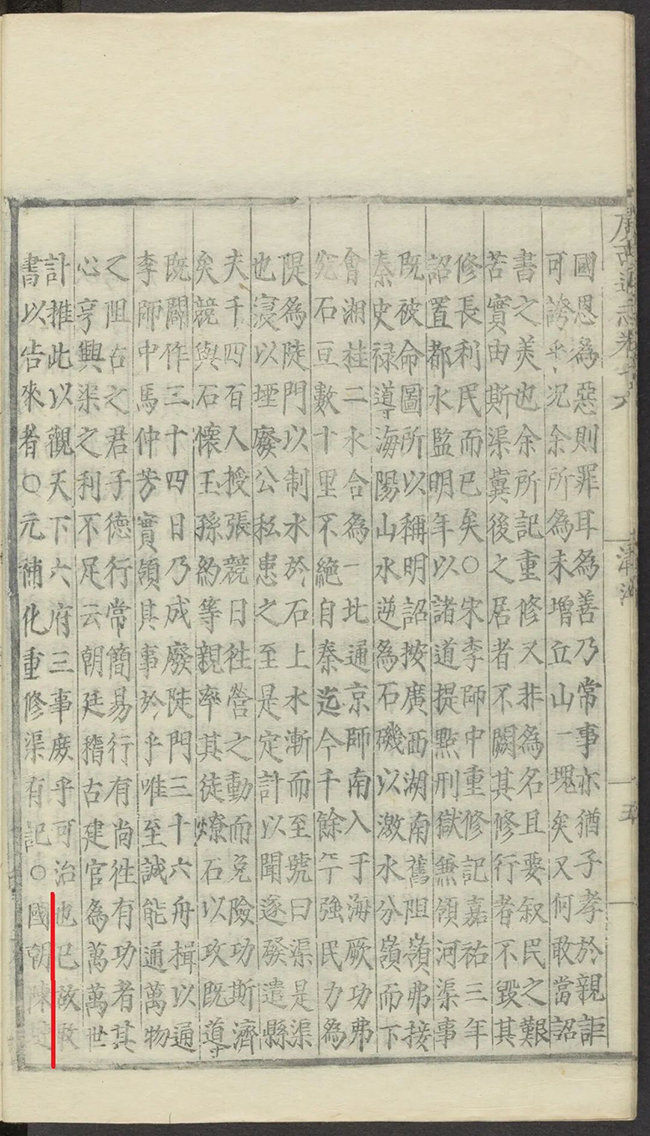 通志卷十六
國恩為惡則罪耳為善乃常事亦猶子孝於親詎
可誇乎况余所為未增丘山一塊矣又何敢當詔
書之美也余所記重修又非為名且要叙民之艱
苦實由斯渠冀後之居者不闕其修行者不毀其
修長利民而已矣○宋李師中重修記嘉祐三年
詔置都水監明年以諸道提點刑獄兼領河渠事
既被命圖所以稱明詔按廣西湖南舊阻嶺弗接
秦史禄導海陽山水逆為石磯以激水分嶺而下
會湘桂二水合為一北通京師南入于海厥功弗
究石亘數十里不絶自秦迄今千餘年强民力為
隄為陡門以制水於石上水漸而至號曰渠是渠
也寖以堙廢公私患之至是定計以聞遂發遣縣
夫千四百人授張競日徃營之動而免險功斯濟
矣競與石懷玉孫約等親率其徒燎石以攻既導
既闢作三十四日乃成廢陡門三十六舟楫以通
李師中馬仲芳實領其事於乎唯至誠能通萬物
之阻古之君子德行常簡易行有尚徃有功者其
心亨興渠之利不足云朝廷稽古建官為萬萬世
計推此以觀天下六府三事庶乎可治也已故敢
書以告來者○元補化重修渠有記○國朝陳